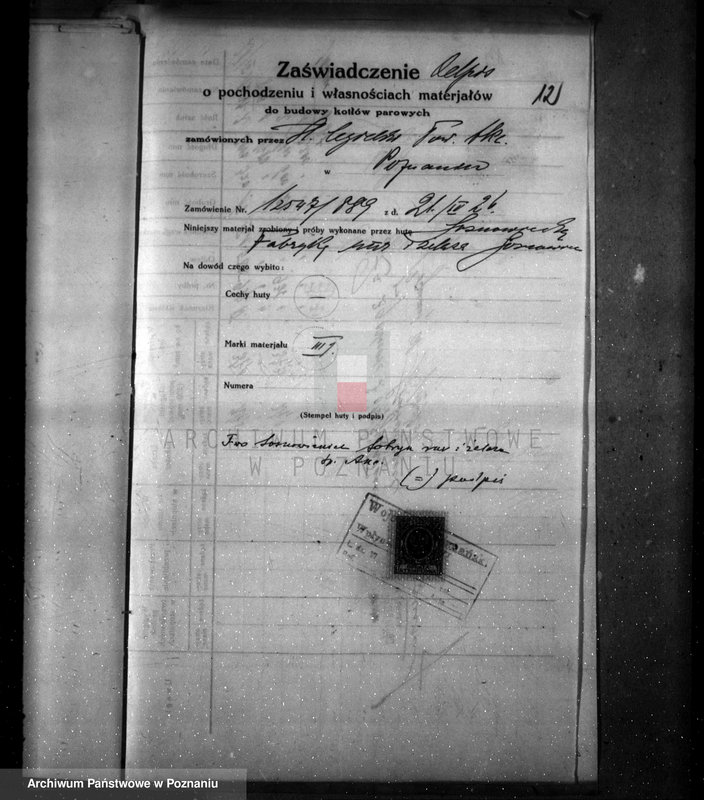 Zaświadczenie Odpis
o pochodzeniu i własnościach materjałów
12
do budowy kotłów parowych
zamówionych przez H. Cegielski Tow. Akc.
w Poznaniu
Zamówienie Nr. 12547/889 z d. 21./IX 26.
Niniejszy materjał zrobiony i próby wykonane przez hutę Sosnowieckie
Fabryki rur i żelaza Sosnowiec
Na dowód czego wybito:
Cechy huty
Marki materjału III J.
Numera
(Stempel huty i podpis)
ARCHIWUM PAŃSTWOWE
W POZNANIU
Two Sosnowieckich Fabryk rur i żelaza
Sp. Akc.
(=) podpis
Archiwum Państwowe w Poznaniu